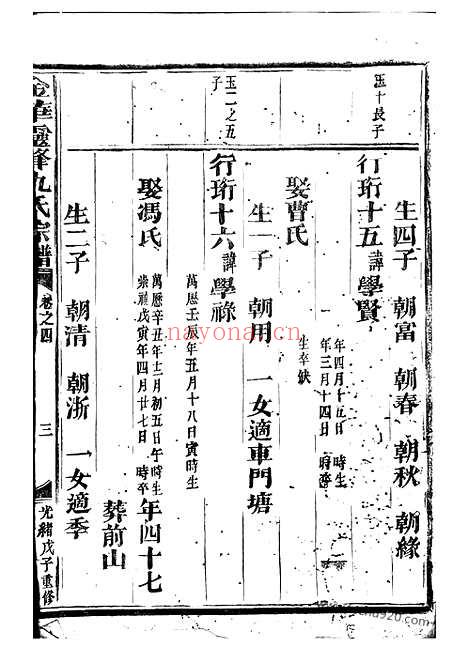 生四子 朝富 朝春 朝秋 朝緣
玉十長子
行珩十五諱學賢
年四月十五日 時生
年三月十四日 時
娶曹氏
生卒缺
生一子 朝用 一女適車門塘
玉二之五子
行珩十六諱學祿
萬曆壬辰年五月十八日寅時生
娶馮氏
萬曆辛丑年十二月初五日午時生
崇禎戊寅年四月廿七日 時卒
年四十七
葬前山
生二子 朝清 朝浙 一女適季
金華靈峰九氏宗譜 卷之四 三 光緒戊子重修
nayona.cn